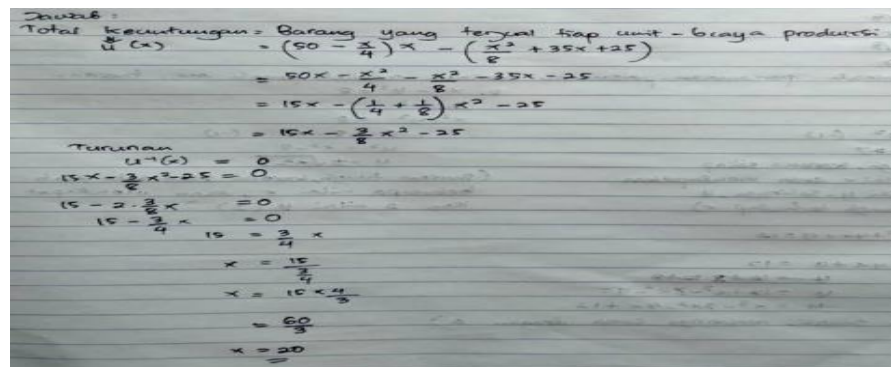 Jawab :
Total keuntungan = Barang yang terjual tiap unit - biaya produksi
u(x) = (50 - x/4) x - (x²/8 + 35x + 25)
= 50x - x²/4 - x²/8 - 35x - 25
= 15x - (1/4 + 1/8) x² - 25
= 15x - 3/8 x² - 25
Turunan
u'(x) = 0
15x - 3/8 x² - 25 = 0
15 - 2 · 3/8 x = 0
15 - 3/4 x = 0
15 = 3/4 x
x = 15/(3/4)
x = 15 × 4/3
= 60/3
x = 20